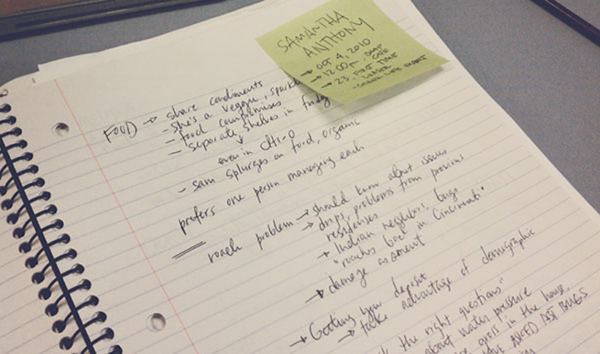 SAMANTHA
ANTHONY
→ OCT 4, 2010
→ 12:00pm,
→ 23, FIRST TIME
FOOD → share condiments
- she's a veggie,
- food compromises
- separate shelves in fridge
even in
- sam splurges on food, organic
prefers one person managing each
roach problem → should know about issues
→ drips, problems from previous
residences
→ Indian neighbors, bugs
"roaches bad in Cincinnati"
→ damage
→ Getting your deposit
→ take advantage of demographic
the right questions"
about water pressure
in the house,
BUGS